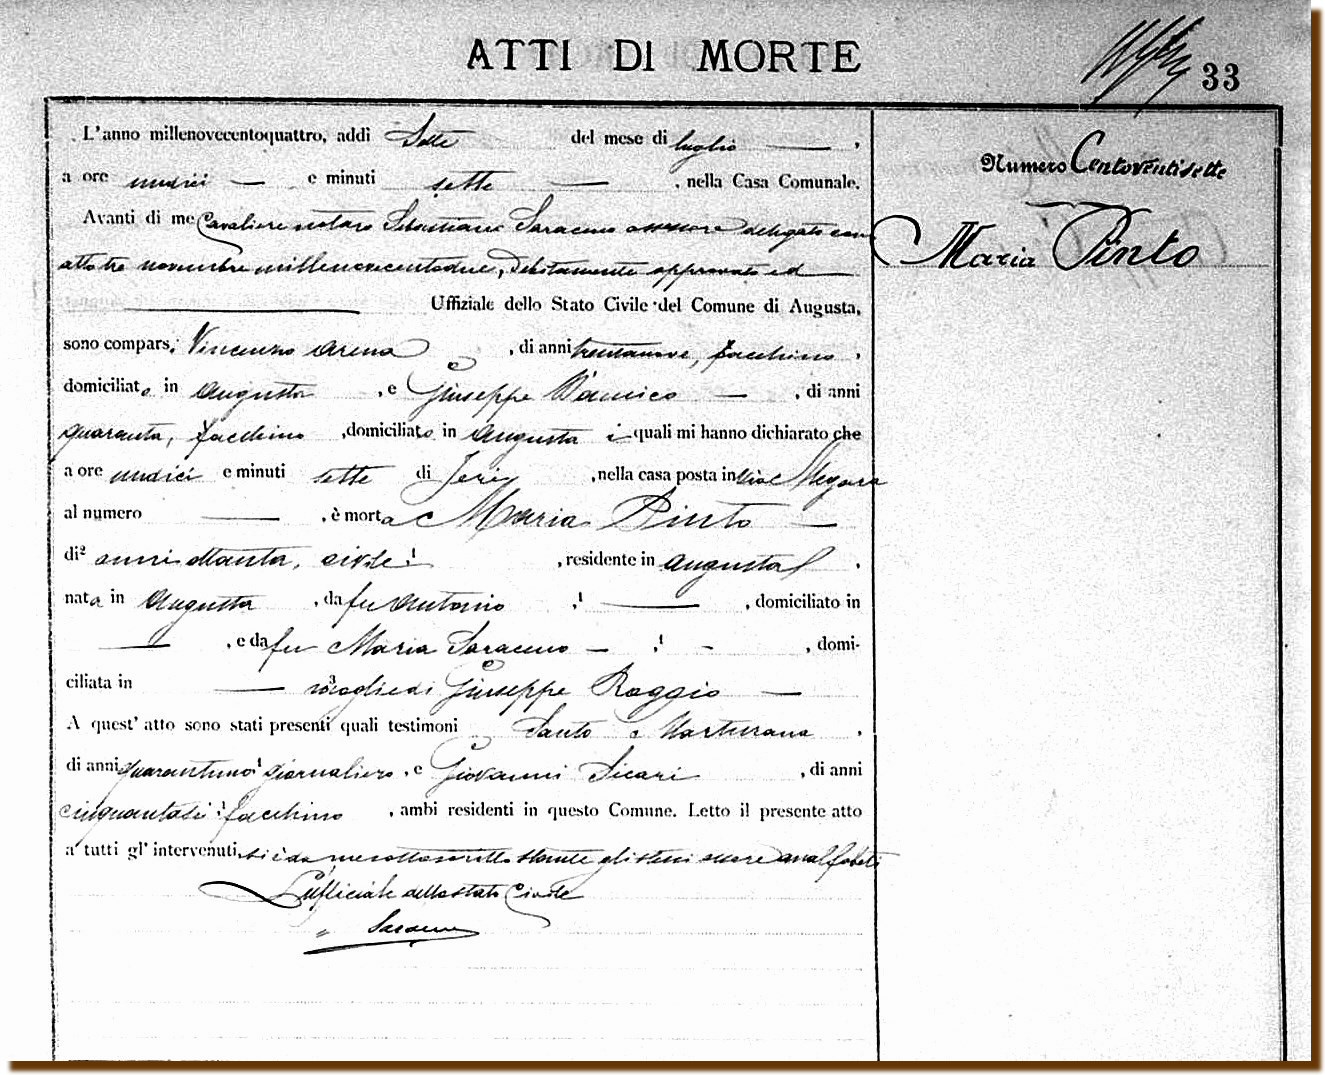 ATTI DI MORTE
33
L'anno millenovecentoquattro, addi Sette del mese di luglio,
a ore undici e minuti sette, nella Casa Comunale.
Avanti di me Cavaliere notaro Sebastiano Saraceno assessore delegato con
atto tre novembre millenovecentodue, debitamente approvato ed
Uffiziale dello Stato Civile del Comune di Augusta,
sono compars. Vincenzo Arena, di anni trentanove, facchino,
domiciliato in Augusta, e Giuseppe D'Amico, di anni
quaranta, facchino, domiciliato in Augusta i quali mi hanno dichiarato che
a ore undici e minuti sette di Jeri, nella casa posta in via Megara
al numero, è morta Maria Pinto
di anni ottanta, civile, residente in Augusta,
nata in Augusta, da fu Antonio, domiciliato in
, e da fu Maria Saraceno, domi-
ciliata in moglie di Giuseppe Roggio
A quest' atto sono stati presenti quali testimoni Santo Marturana,
di anni quarantuno giornaliero, e Giovanni Sicari, di anni
cinquantasei facchino, ambi residenti in questo Comune. Letto il presente atto
a tutti gl' intervenuti, si è da me sottoscritto stante gli stessi essere analfabeti
L'ufficiale dello stato Civile
Saraceno
Numero Centoventisette
Maria Pinto